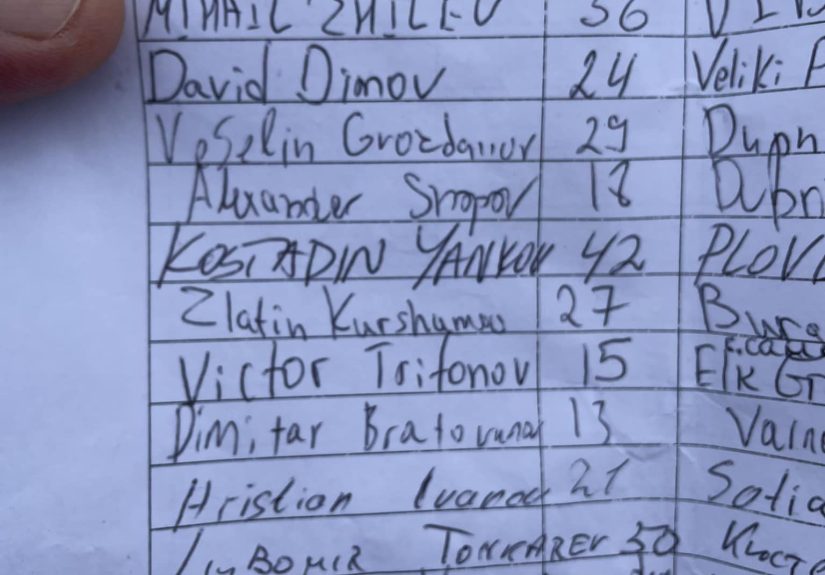 MIHAIL ZHILEV 36
David Dimov 24 Veliki P
VeSelin Grozdanov 29 Dupn
Alexander Shopov 18 Dupn
KOSTADIN YANKOV 42 PLOVI
Zlatin 27 Burga
Victor Trifonov 15 Elk G
Dimitar 13 Varn
Hristian Ivanov 21 Sofia
LyuBOMIR 30